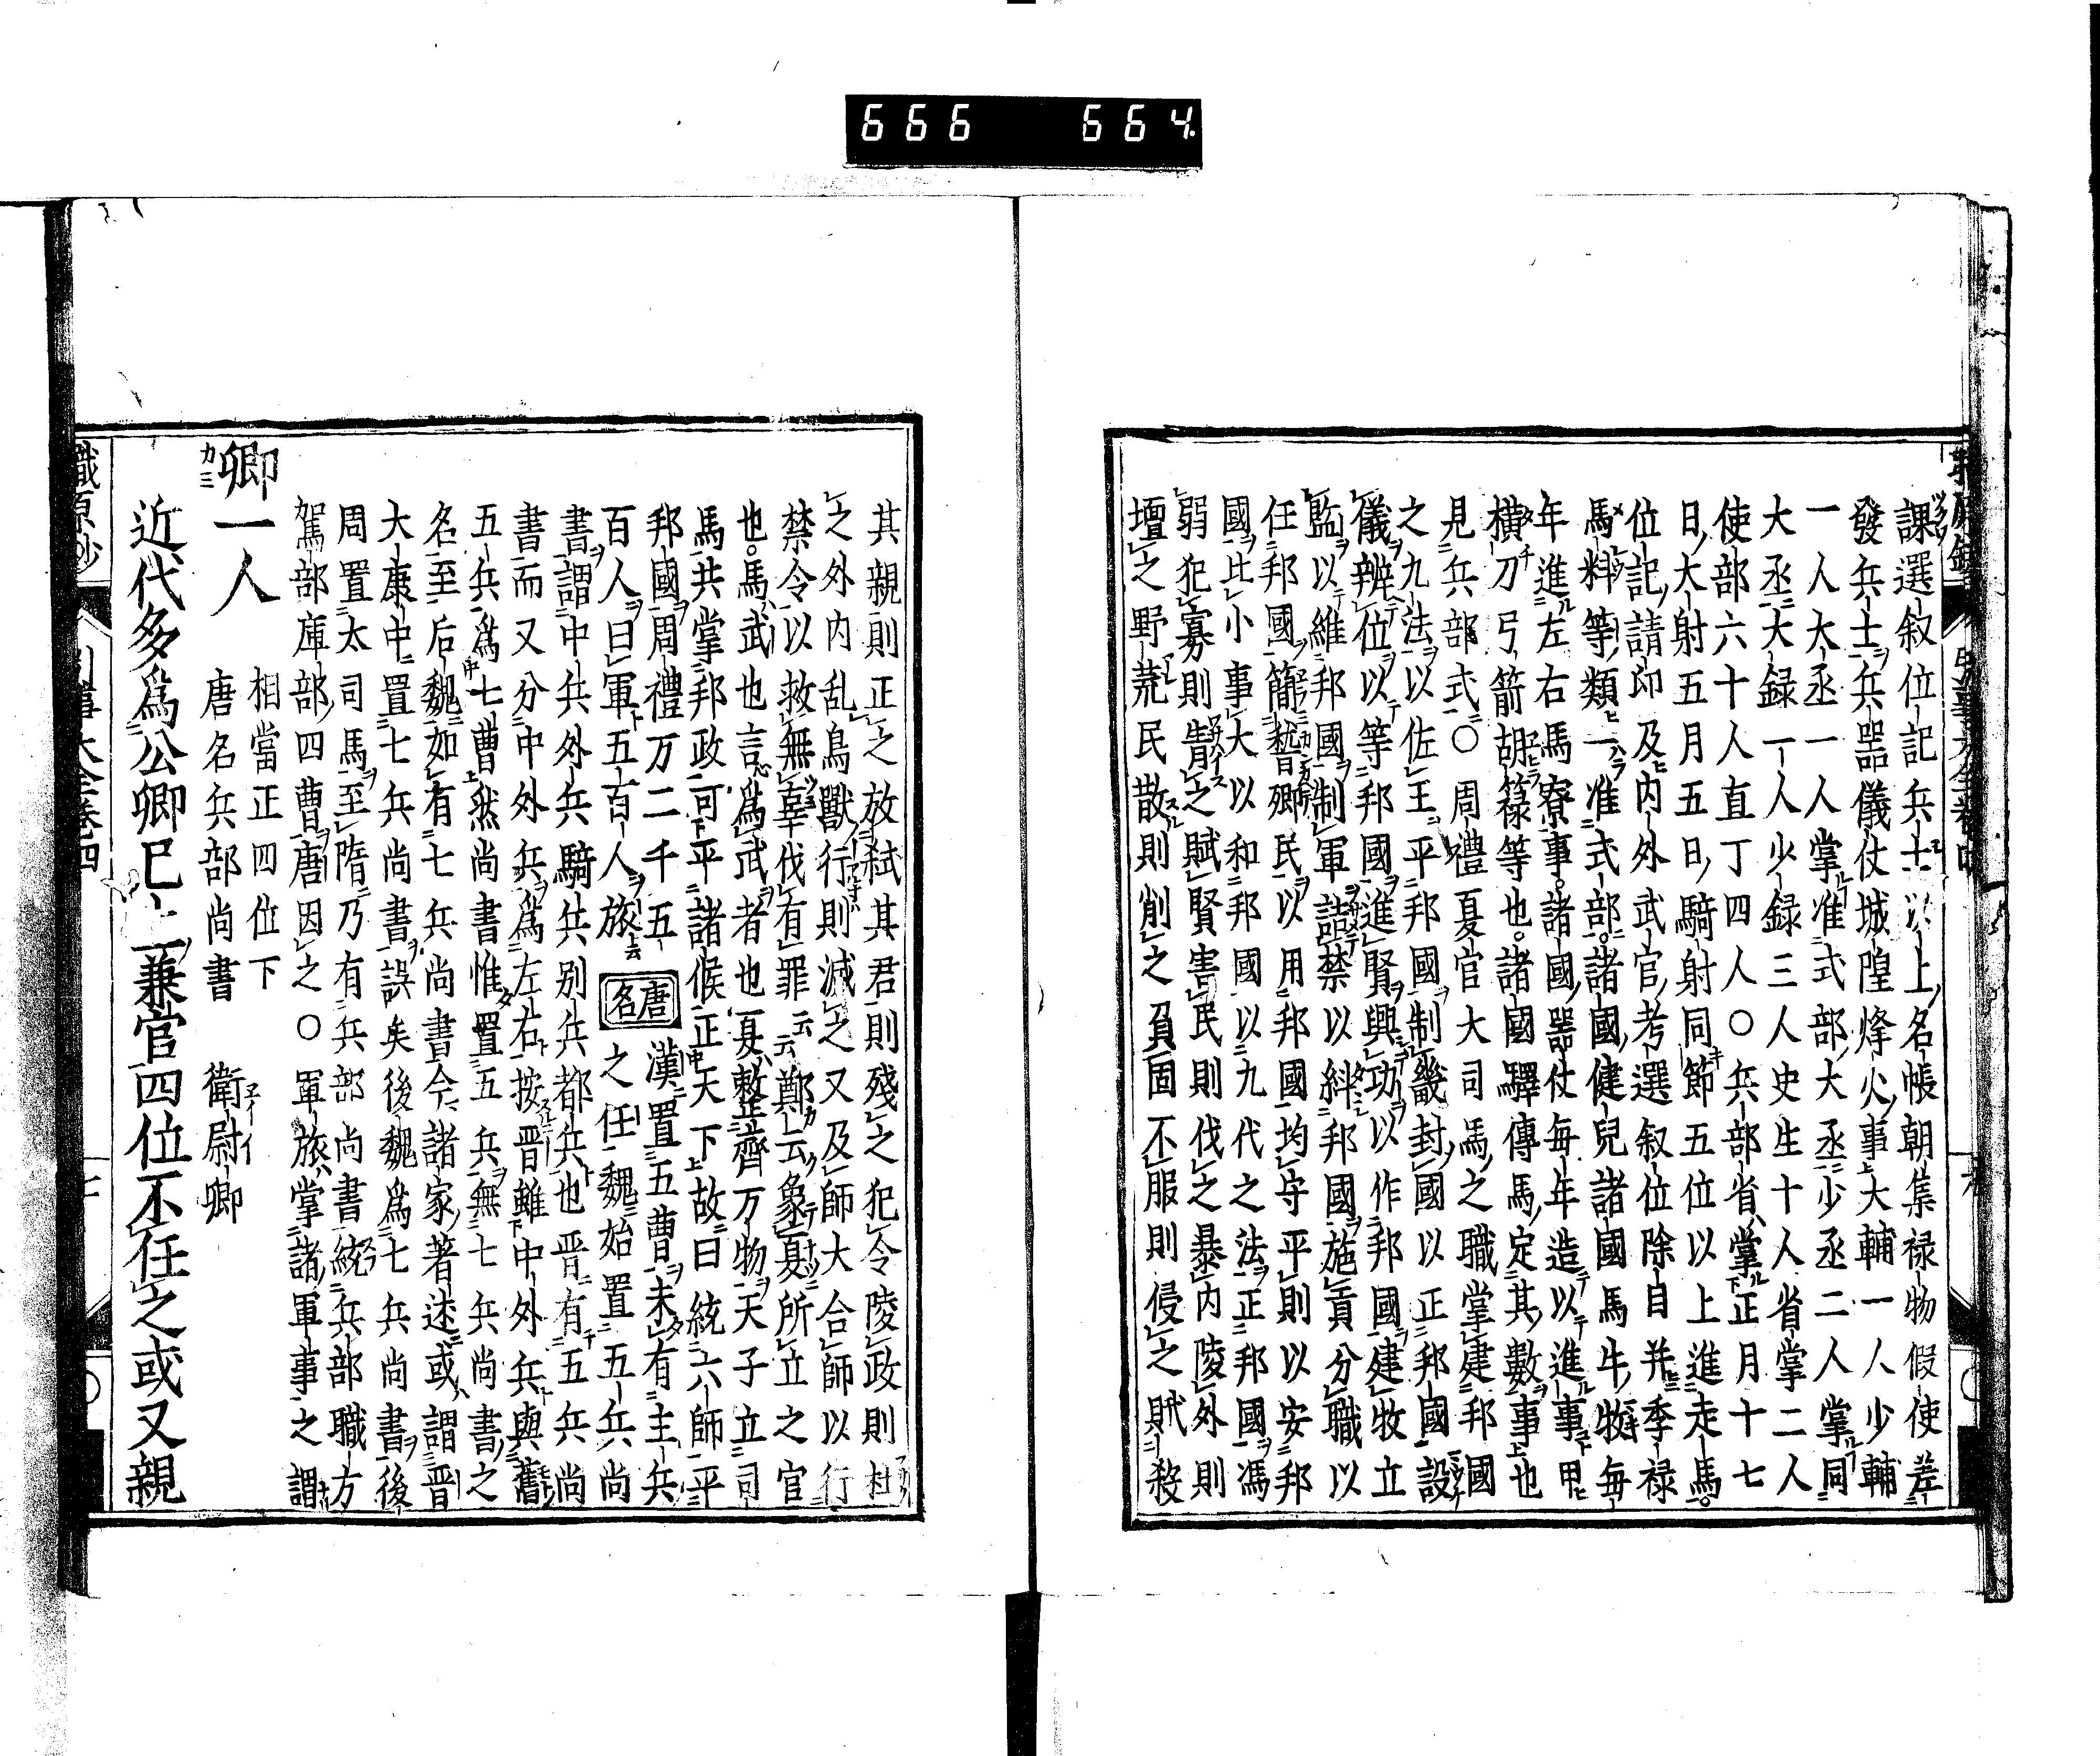 666 664
課選叙位記兵士以上名帳朝集禄物假使差
發兵士兵器儀仗城隍烽火事大輔一人少輔
一人大丞一人掌准式部大丞少丞二人掌同
大丞大録一人少録三人史生十人省掌二人
使部六十人直丁四人○兵部省掌正月十七
日大射五月五日騎射同節五位以上進走馬
位記請印及内外武官考選叙位除目并季禄
馬料等類一准式部諸國健兒諸國馬牛牧毎
年進左右馬寮事諸國器仗毎年造以進事甲
横刀弓箭胡籙等也諸國驛傳馬定其數事也
見兵部式○周禮夏官大司馬之職掌建邦國
之九法以佐王平邦國制畿封國以正邦國設
儀辨位以等邦國進賢興功以作邦國建牧立
監以維邦國制軍詰禁以糾邦國施貢分職以
任邦國簡稽郷民以用邦國均守平則以安邦
國比小事大以和邦國以九代之法正邦國馮
弱犯寡則眚之賊賢害民則伐之暴内陵外則
壇之野荒民散則削之負固不服則侵之賊殺
其親則正之放弑其君則殘之犯令陵政則杜
之外内乱鳥獸行則滅之又及師大合師以行
禁令以救無辜伐有罪云云鄭云象夏所立之官
也馬武也言為武者也夏整齊万物天子立司
馬共掌邦政可平諸候正天下故曰統六師平
邦國周禮万二千五百人曰軍五百人旅
唐名
漢置五曹未有主兵
之任魏始置五兵尚
書謂中兵外兵騎兵别兵都兵也晋有五兵尚
書而又分中外兵為左右按晋雖中外兵與舊
五兵為七曹然尚書惟置五兵無七兵尚書之
名至后魏如有七兵尚書今諸家著迷或謂晋
大康中置七兵尚書誤矣後魏為七兵尚書後
周置太司馬至隋乃有兵部尚書統兵部職方
駕部庫部四曹唐因之○軍旅掌諸軍事之謂
卿一人
カミ
相當正四位下
唐名兵部尚書 衛尉卿
近代多為公卿已上兼官四位不任之或又親
職原抄